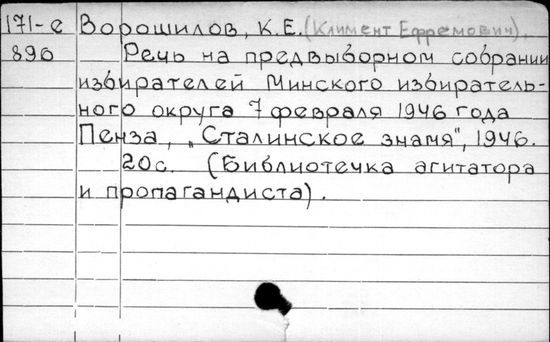 171-е Ворошилов, К.Е. (Климент Ефремович).
896 Речь на предвыборном собрании
избирателей Минского избиратель-
ного округа 7 февраля 1946 года
Пенза, „Сталинское знамя", 1946.
20с. (Библиотечка агитатора
и пропагандиста).